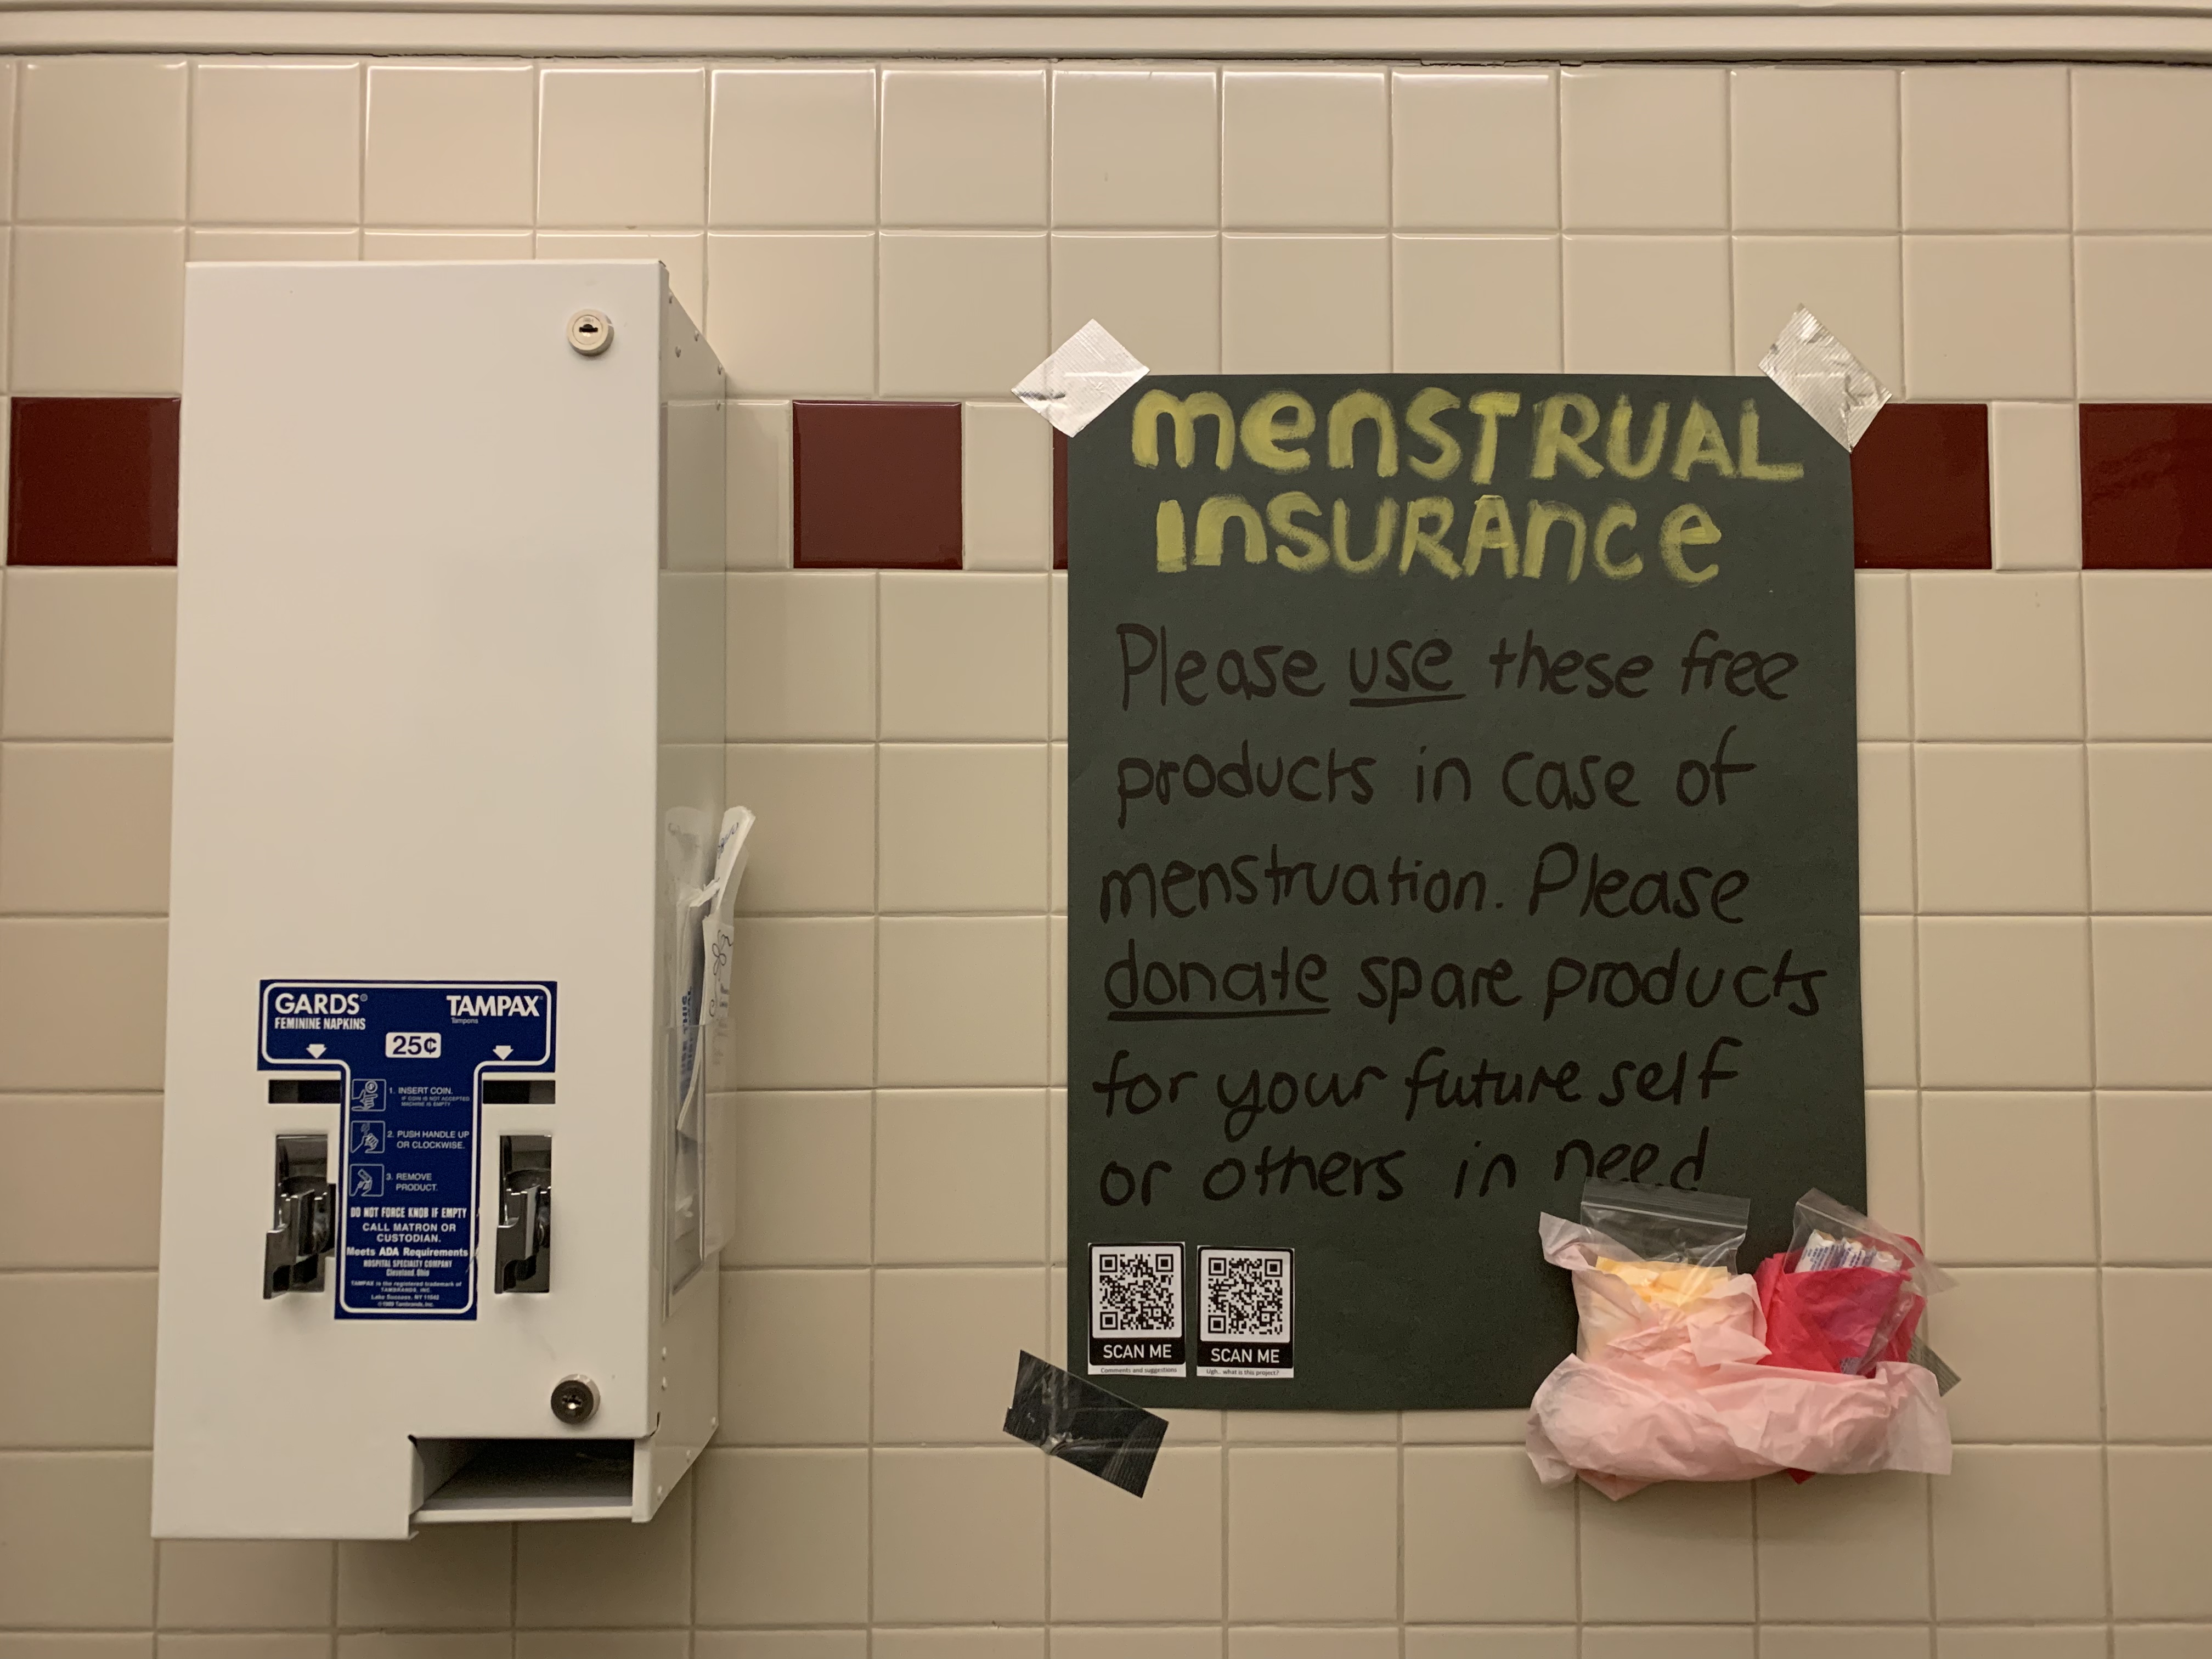 GARDS®
FEMININE NAPKINS
TAMPAX
Tampons
25¢
1. INSERT COIN.
IF COIN IS NOT ACCEPTED
MACHINE IS EMPTY.
2. PUSH HANDLE UP
OR CLOCKWISE.
3. REMOVE
PRODUCT.
DO NOT FORCE KNOB IF EMPTY
CALL MATRON OR
CUSTODIAN.
Meets ADA Requirements
HOSPITAL SPECIALTY COMPANY
Cleveland, Ohio
TAMPAX is the registered trademark of
TAMBRANDS, INC.
Lake Success, NY 11042
©1989 Tambrands, Inc.
menSTRUAL
InSURAnce
Please use these free
products in case of
menstruation. Please
donate spare products
for your future self
or others in need
SCAN ME
Comments and suggestions
SCAN ME
Ugh.. what is this project?